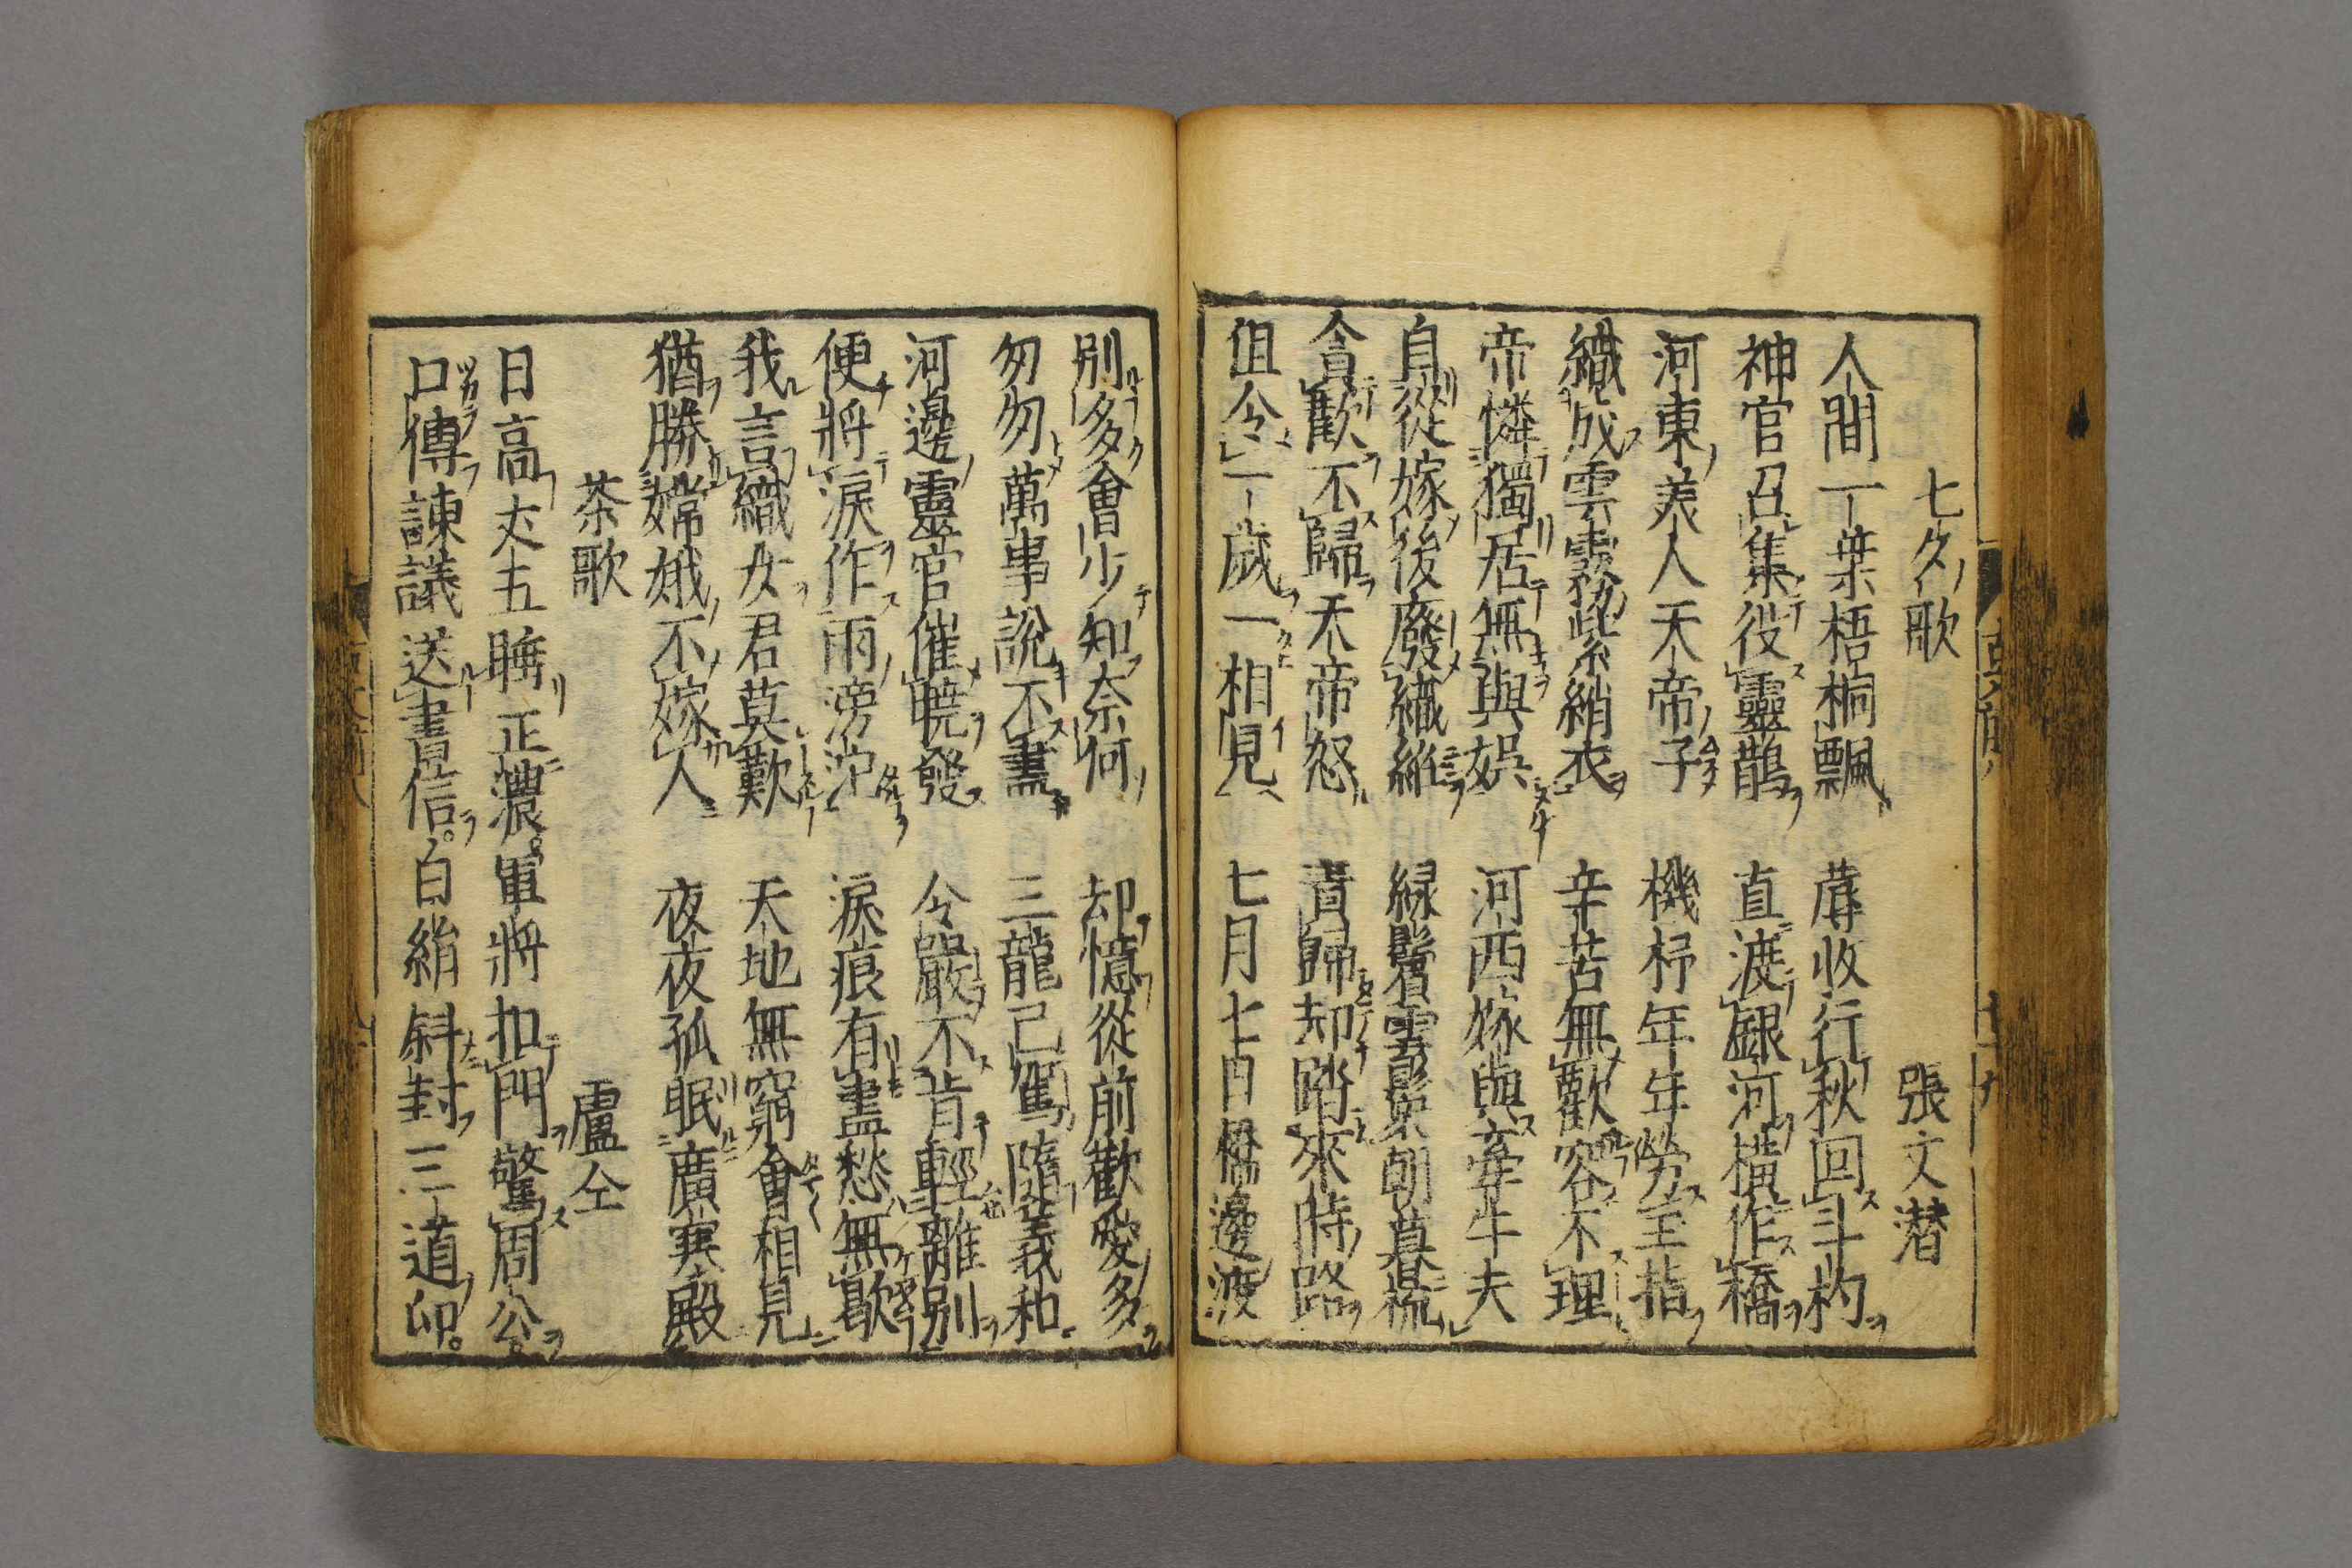 七夕歌　張文潜
人間一葉梧桐飄　蓐收行秋回斗杓
神官召集役靈鵲　直渡銀河橫作橋
河東美人天帝子　機杼年年勞玉指
織成雲霧紫綃衣　辛苦無歡容不理
帝憐獨居無與娯　河西嫁與牽牛夫
自從嫁後廢織絍　緑鬢雲鬟朝暮梳
貪歡不歸天帝怒　責歸却踏來時路
但令一歲一相見　七月七日橋邊渡
別多會少知奈何　却憶從前歡愛多
匆匆萬事說不盡　三龍已駕隨羲和
河邊靈官催曉發　令嚴不肯輕離別
便將淚作雨滂沱　淚痕有盡愁無歇
我言織女君莫歎　天地無窮會相見
猶勝嫦娥不嫁人　夜夜孤眠廣寒殿
茶歌　盧仝
日高丈五睡正濃。軍將扣門驚周公。
口傳諫議送書信。白絹斜封三道印。